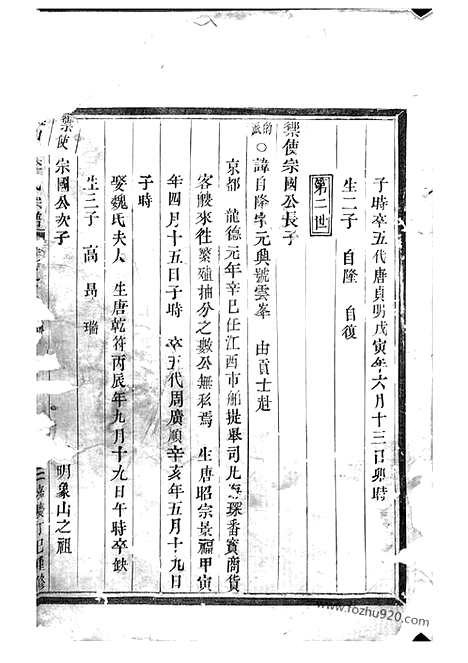 子時卒五代唐貞明戊寅年六月十三日卯時
生二子 自隆 自復
第二世
禦使宗國公長子
的派〇諱自隆字元興號雲峯 由貢士赴
京都 龍德元年辛巳任江西市舶提舉司凡海琛番寶商貨
客艘來往繁殖抽分之數公無移焉 生唐昭宗景福甲寅
年四月十五日子時 卒五代周廣順辛亥年五月十九日
子時
娶魏氏夫人 生唐乾符丙辰年九月十九日午時卒缺
生三子 高 昺 瑙
禦使宗國公次子
明象山之祖
宗譜
丁巳重修
www.fozhu920.com